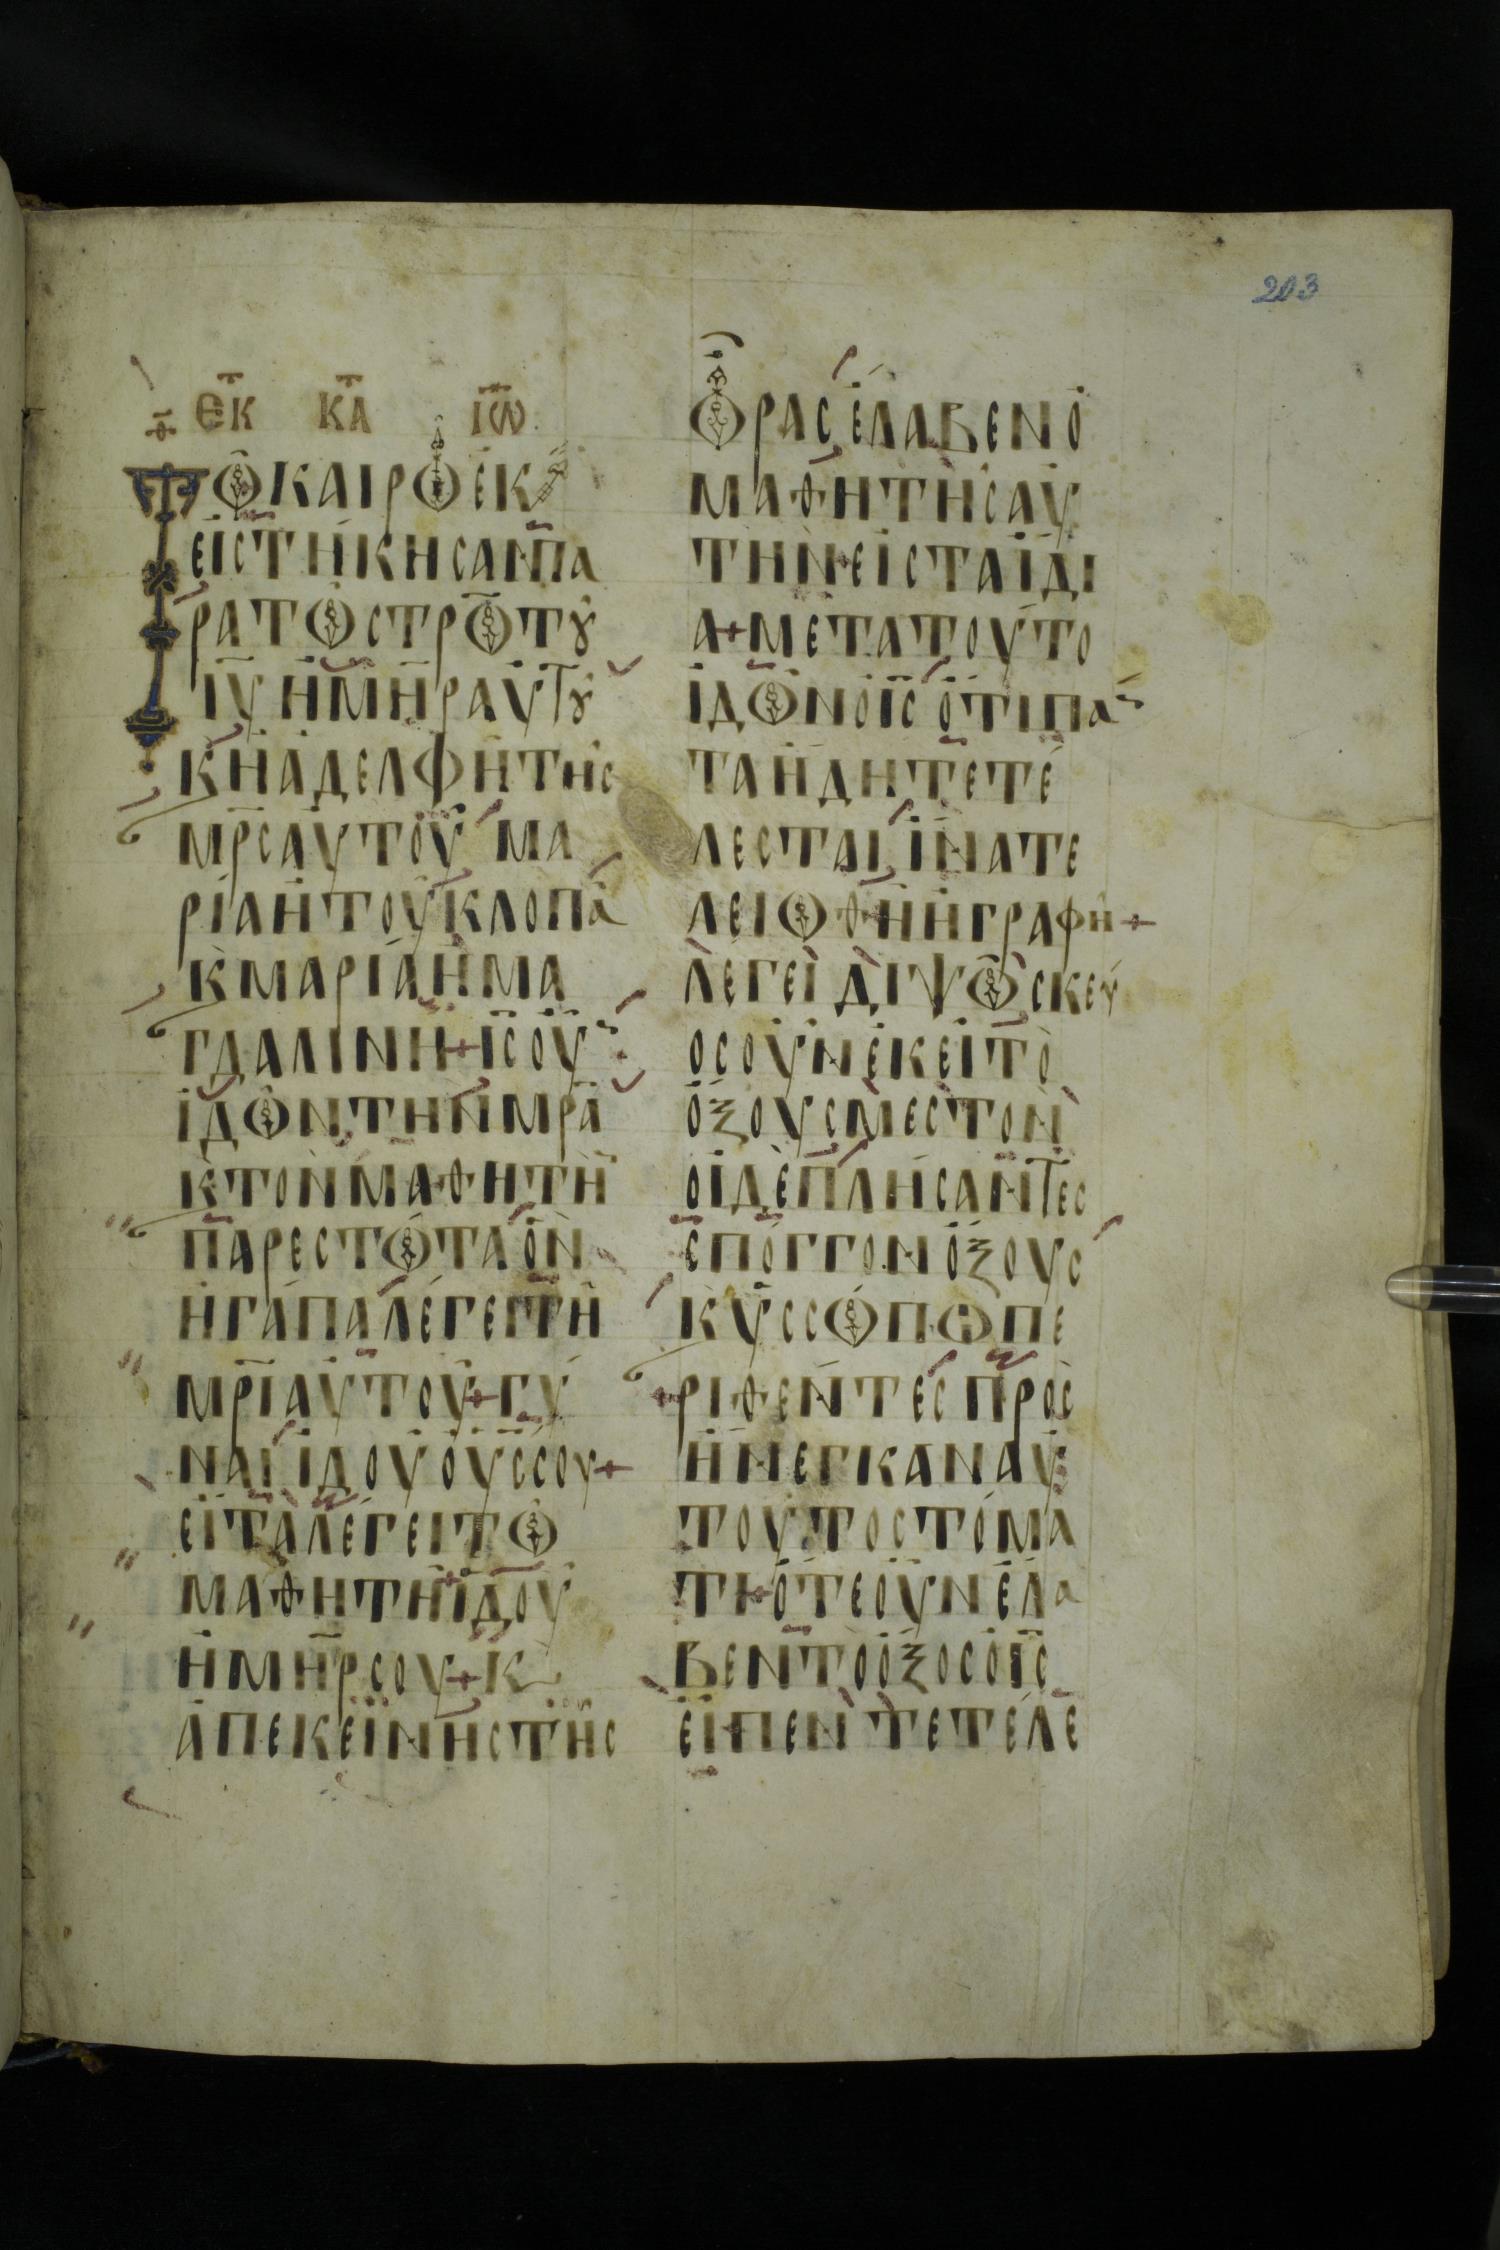 203
ΕΚ ΚΑ ΙΩ
ΤΩ ΚΑΙΡΩ ΕΚ
ΕΙΣΤΗΚΗΣΑΝ ΠΑ
ΡΑ ΤΩ ΣΤΡΩ ΤȢ
ΙΥ Η ΜΗΡ ΑΥΤȢ
Κ Η ΑΔΕΛΦΗ ΤΗΣ
ΜΡΣ ΑΥΤΟΥ ΜΑ
ΡΙΑ Η ΤΟΥ ΚΛΟΠΑ
Κ ΜΑΡΙΑ Η ΜΑ
ΓΔΑΛΙΝΗ + ΙΣ ΟΥ
ΙΔΩΝ ΤΗΝ ΜΡΑ
Κ ΤΟΝ ΜΑΘΗΤΗ
ΠΑΡΕΣΤΩΤΑ ΟΝ
ΗΓΑΠΑ ΛΕΓΕΙ ΤΗ
ΜΡΙ ΑΥΤΟΥ + ΓΥ
ΝΑΙ ΙΔΟΥ Ο ΥΣ ΣΟΥ +
ΕΙΤΑ ΛΕΓΕΙ ΤΩ
ΜΑΘΗΤΗ ΙΔΟΥ
Η ΜΗΡ ΣΟΥ + Κ
ΑΠ ΕΚΕΙΝΗΣ ΤΗΣ
ΩΡΑΣ ΕΛΑΒΕΝ Ο
ΜΑΘΗΤΗΣ ΑΥ
ΤΗΝ ΕΙΣ ΤΑ ΙΔΙ
Α + ΜΕΤΑ ΤΟΥΤΟ
ΙΔΩΝ Ο ΙΣ ΟΤΙ ΠΑ
ΤΑ ΗΔΗ ΤΕΤΕ
ΛΕΣΤΑΙ ΙΝΑ ΤΕ
ΛΕΙΩΘΗ Η ΓΡΑΦΗ +
ΛΕΓΕΙ ΔΙΨΩ ΣΚΕΥ
ΟΣ ΟΥΝ ΕΚΕΙΤΟ
ΟΞΟΥΣ ΜΕΣΤΟΝ
ΟΙ ΔΕ ΠΛΗΣΑΝΤΕΣ
ΣΠΟΓΓΟΝ ΟΞΟΥΣ
Κ ΥΣΣΩΠΩ ΠΕ
ΡΙΘΕΝΤΕΣ ΠΡΟΣ
ΗΝΕΓΚΑΝ ΑΥ
ΤΟΥ ΤΟ ΣΤΟΜΑ
ΤΙ + ΟΤΕ ΟΥΝ ΕΛΑ
ΒΕΝ ΤΟ ΟΞΟΣ Ο ΙΣ
ΕΙΠΕΝ ΤΕΤΕΛΕ